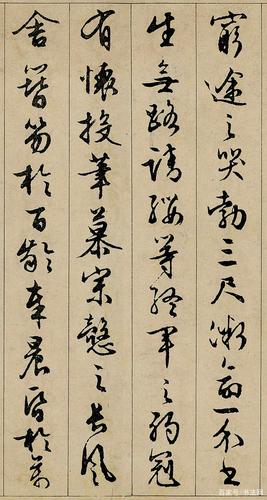 窮途之哭勃三尺微命一介書
生無路請纓等終軍之弱冠
有懷投筆慕宗愨之長風
舍簪笏於百齡奉晨昏於萬